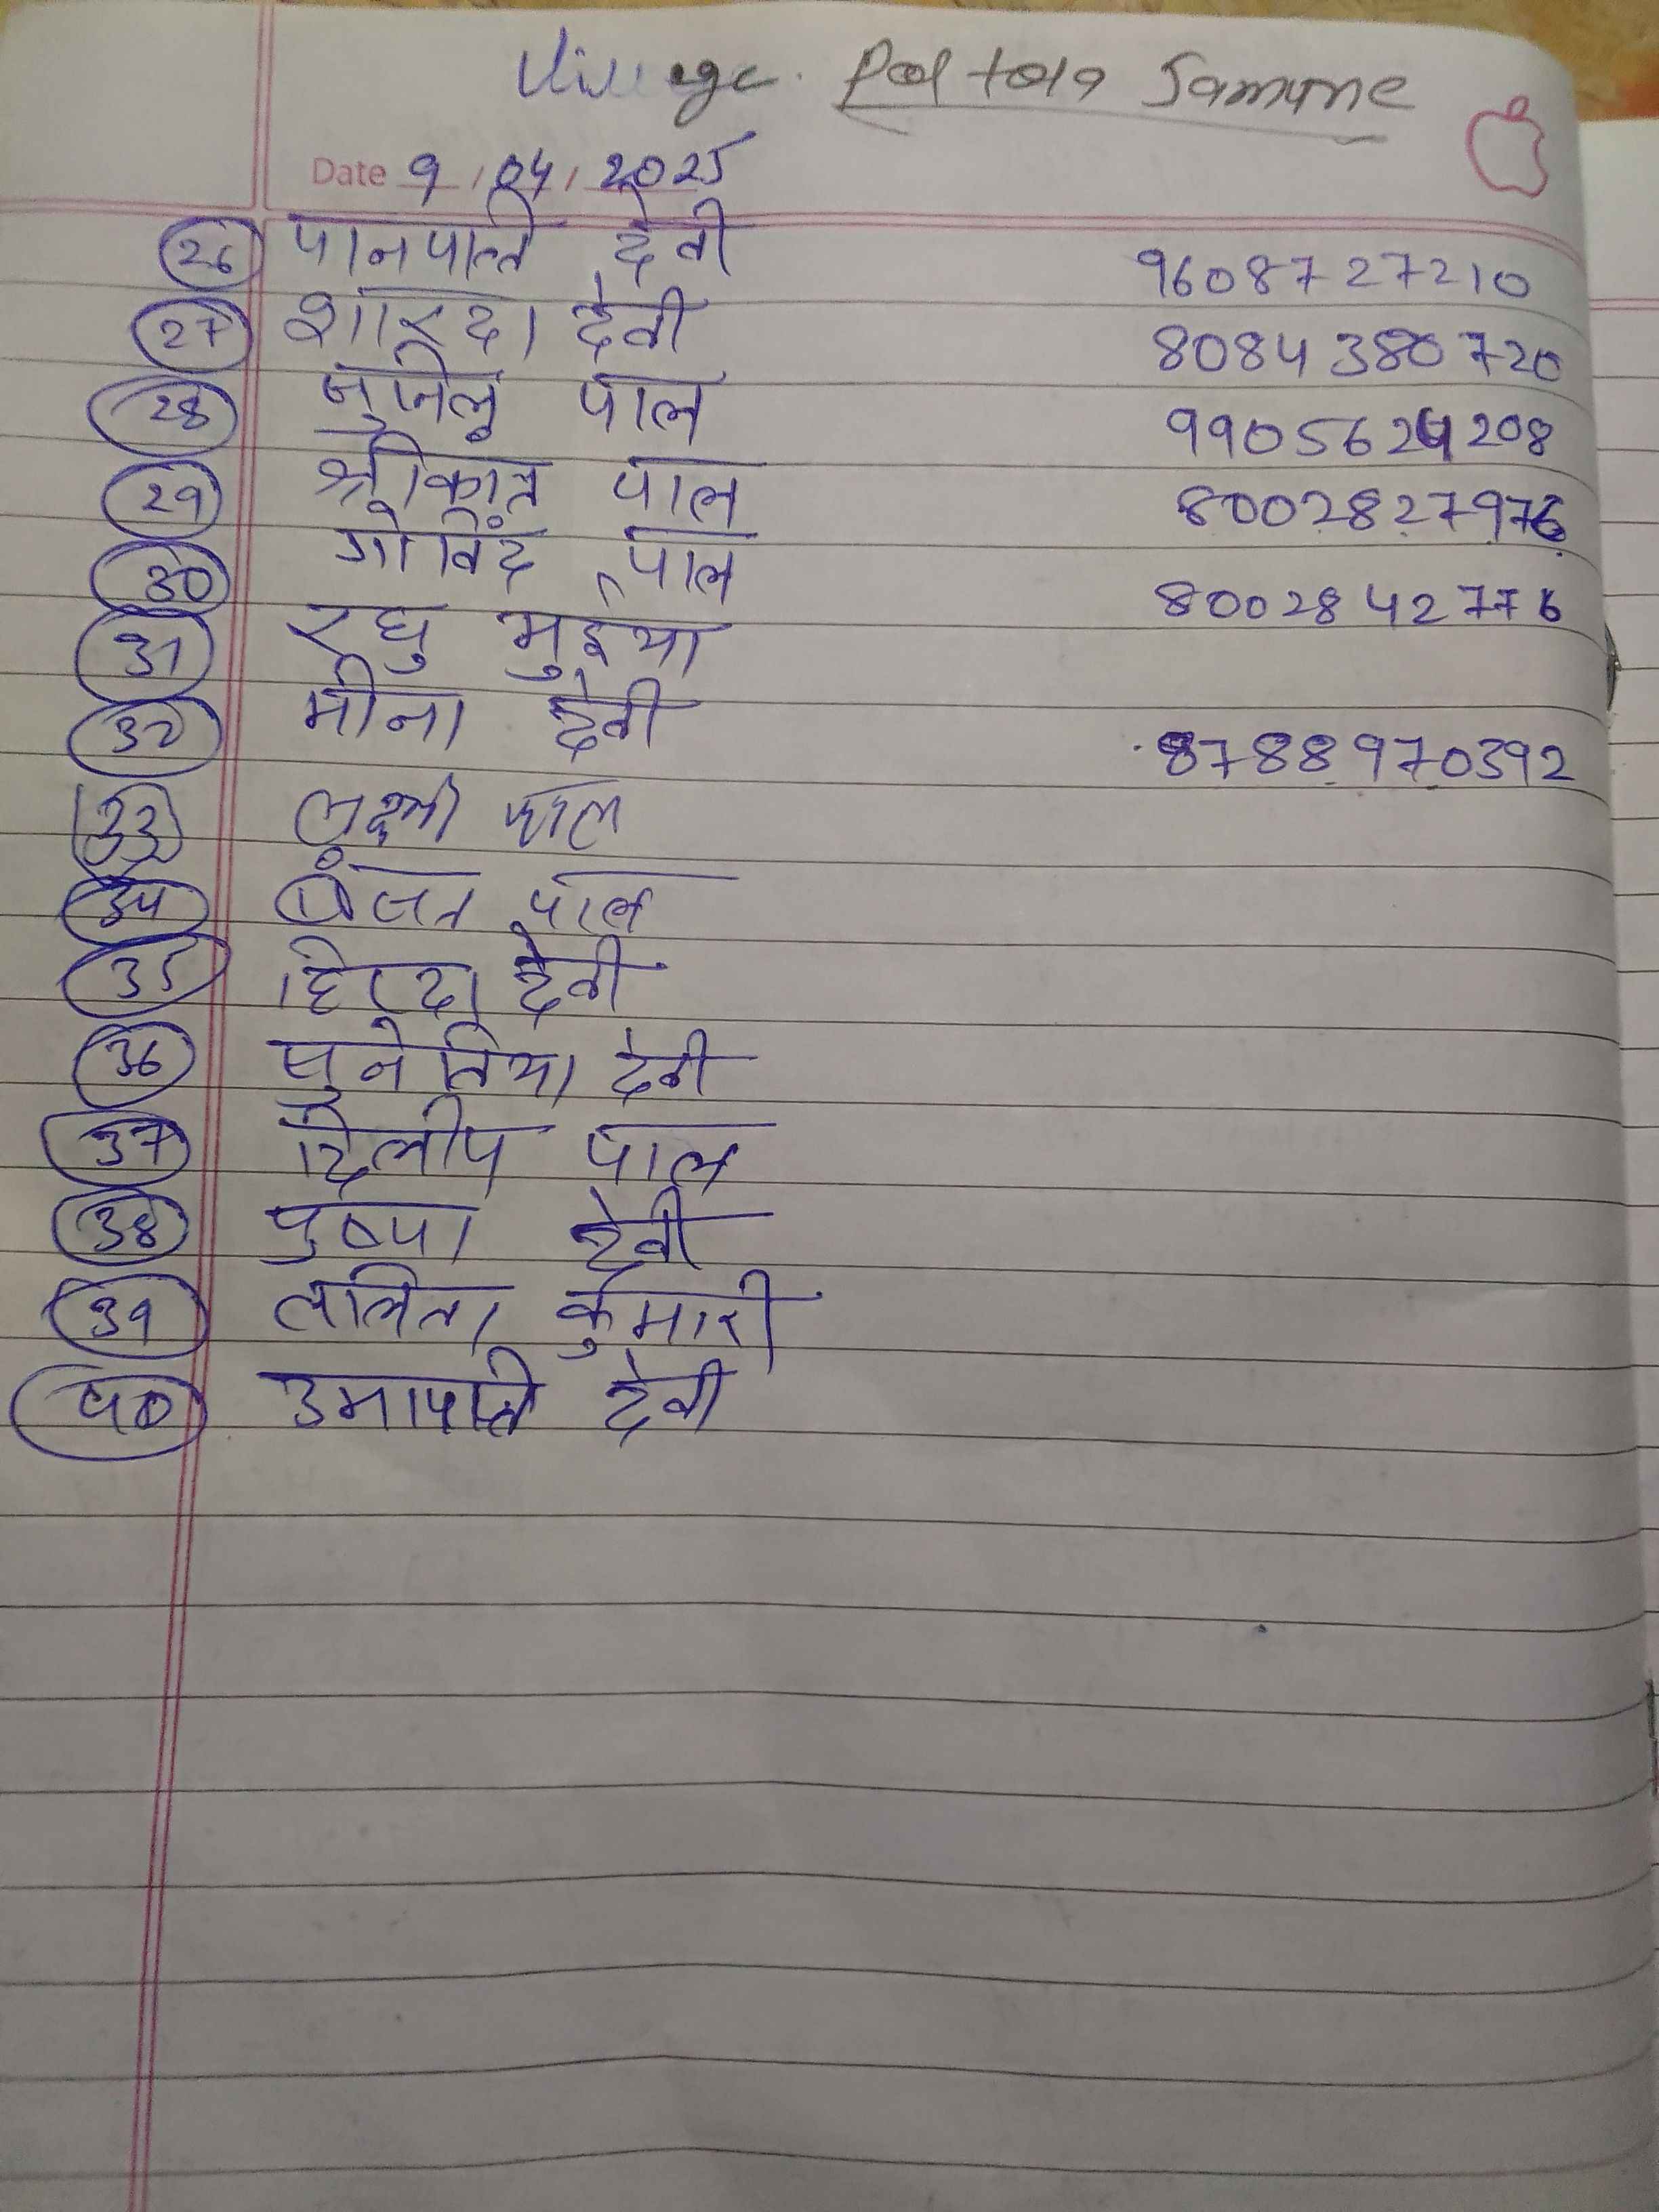 Village. Pal tola Samune
Date 9/04/2025
26 पानपति देवी 9608727210
27 शारदा देवी 8084380720
28 पाल 9905624208
29 श्रीकान्त पाल 8002827976
30 गोविंद पाल 8002842776
31 रघु भुइया
32 मीना देवी 8788970392
33 लक्ष्मी पाल
34 पाल
35 हिरदा देवी
36 देवी
37 दिलीप पाल
38 पुष्पा देवी
39 ललिता कुमारी
40 उमापति देवी